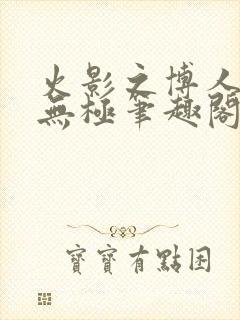 火影之博人
無極筆趣閣
寶寶有點困